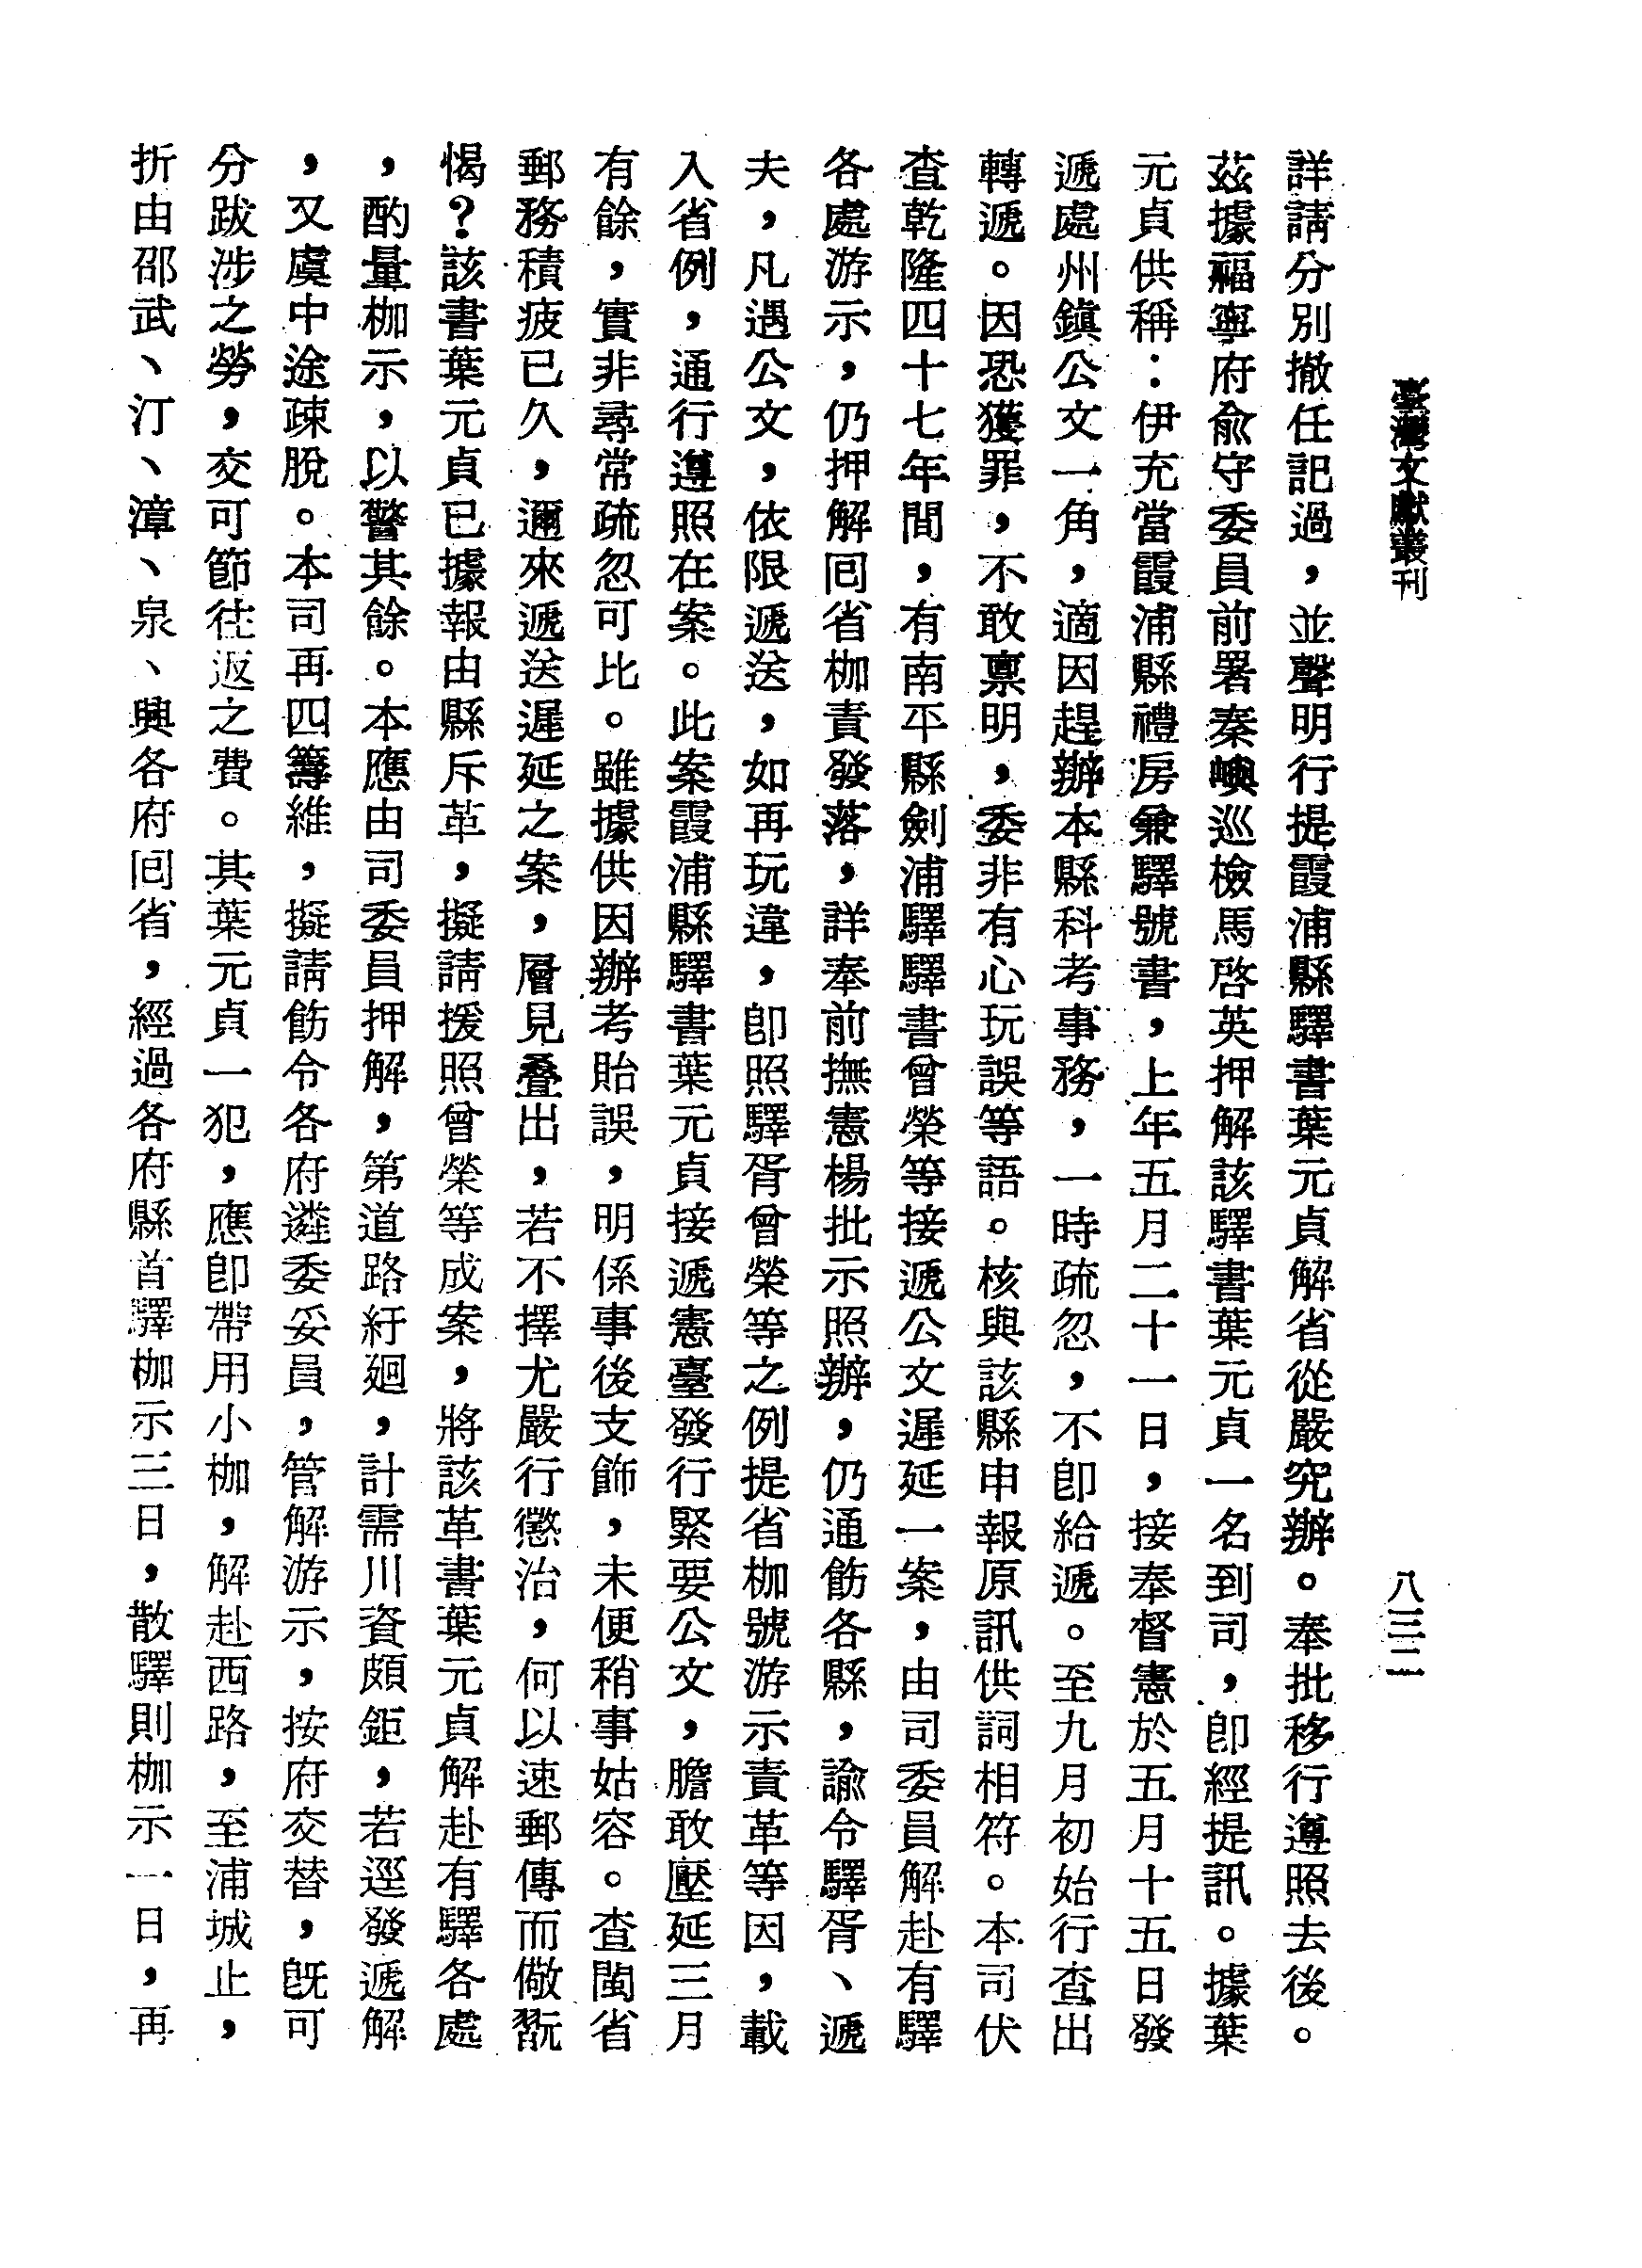 臺灣文獻叢刊
八三二
詳請分別撤任記過，並聲明行提霞浦縣驛書葉元貞解省從嚴究辦。奉批移行遵照去後。
茲據福寧府俞守委員前署秦嶼巡檢馬啓英押解該驛書葉元貞一名到司，卽經提訊。據葉
元貞供稱：伊充當霞浦縣禮房兼驛號書，上年五月二十一日，接奉督憲於五月十五日發
遞處州鎮公文一角，適因趕辦本縣科考事務，一時疏忽，不卽給遞。至九月初始行查出
轉遞。因恐獲罪，不敢稟明，委非有心玩誤等語。核與該縣申報原訊供詞相符。本司伏
查乾隆四十七年間，有南平縣劍浦驛驛書曾榮等接遞公文遲延一案，由司委員解赴有驛
各處游示，仍押解囘省枷責發落，詳奉前撫憲楊批示照辦，仍通飭各縣，諭令驛胥、遞
夫，凡遇公文，依限遞送，如再玩違，卽照驛胥曾榮等之例提省枷號游示責革等因，載
入省例，通行遵照在案。此案霞浦縣驛書葉元貞接遞憲臺發行緊要公文，膽敢壓延三月
有餘，實非尋常疏忽可比。雖據供因辦考貽誤，明係事後支飾，未便稍事姑容。查閩省
郵務積疲已久，邇來遞送遲延之案，層見叠出，若不擇尤嚴行懲治，何以速郵傳而儆翫
愒？該書葉元貞已據報由縣斥革，擬請援照曾榮等成案，將該革書葉元貞解赴有驛各處
，酌量枷示，以警其餘。本應由司委員押解，第道路紆廻，計需川資頗鉅，若逕發遞解
，又虞中途疎脫。本司再四籌維，擬請飭令各府遴委妥員，管解游示，按府交替，旣可
分跋涉之勞，交可節往返之費。其葉元貞一犯，應卽帶用小枷，解赴西路，至浦城止，
折由邵武、汀、漳、泉、興各府囘省，經過各府縣首驛枷示三日，散驛則枷示一日，再